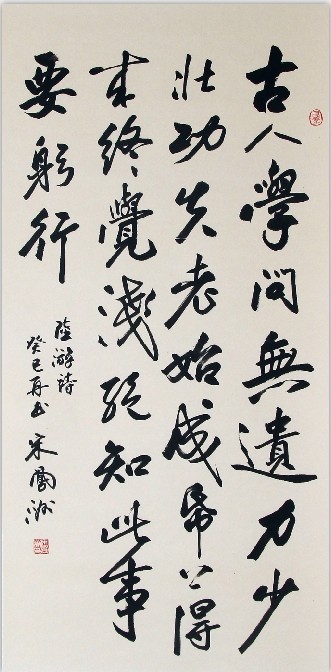 古人學問無遺力少
壮功夫老始成帋上得
来終覺淺絕知此事
要躬行
陸游詩
癸巳 书 宋鳳洲